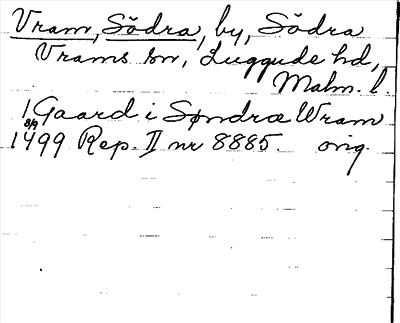 Vram, Södra, by, Södra
Vrams sn, Luggude hd,
Malm. l.
1 Gaard i Søndra Wram
8/9
1499 Rep. II nr 8885. orig.